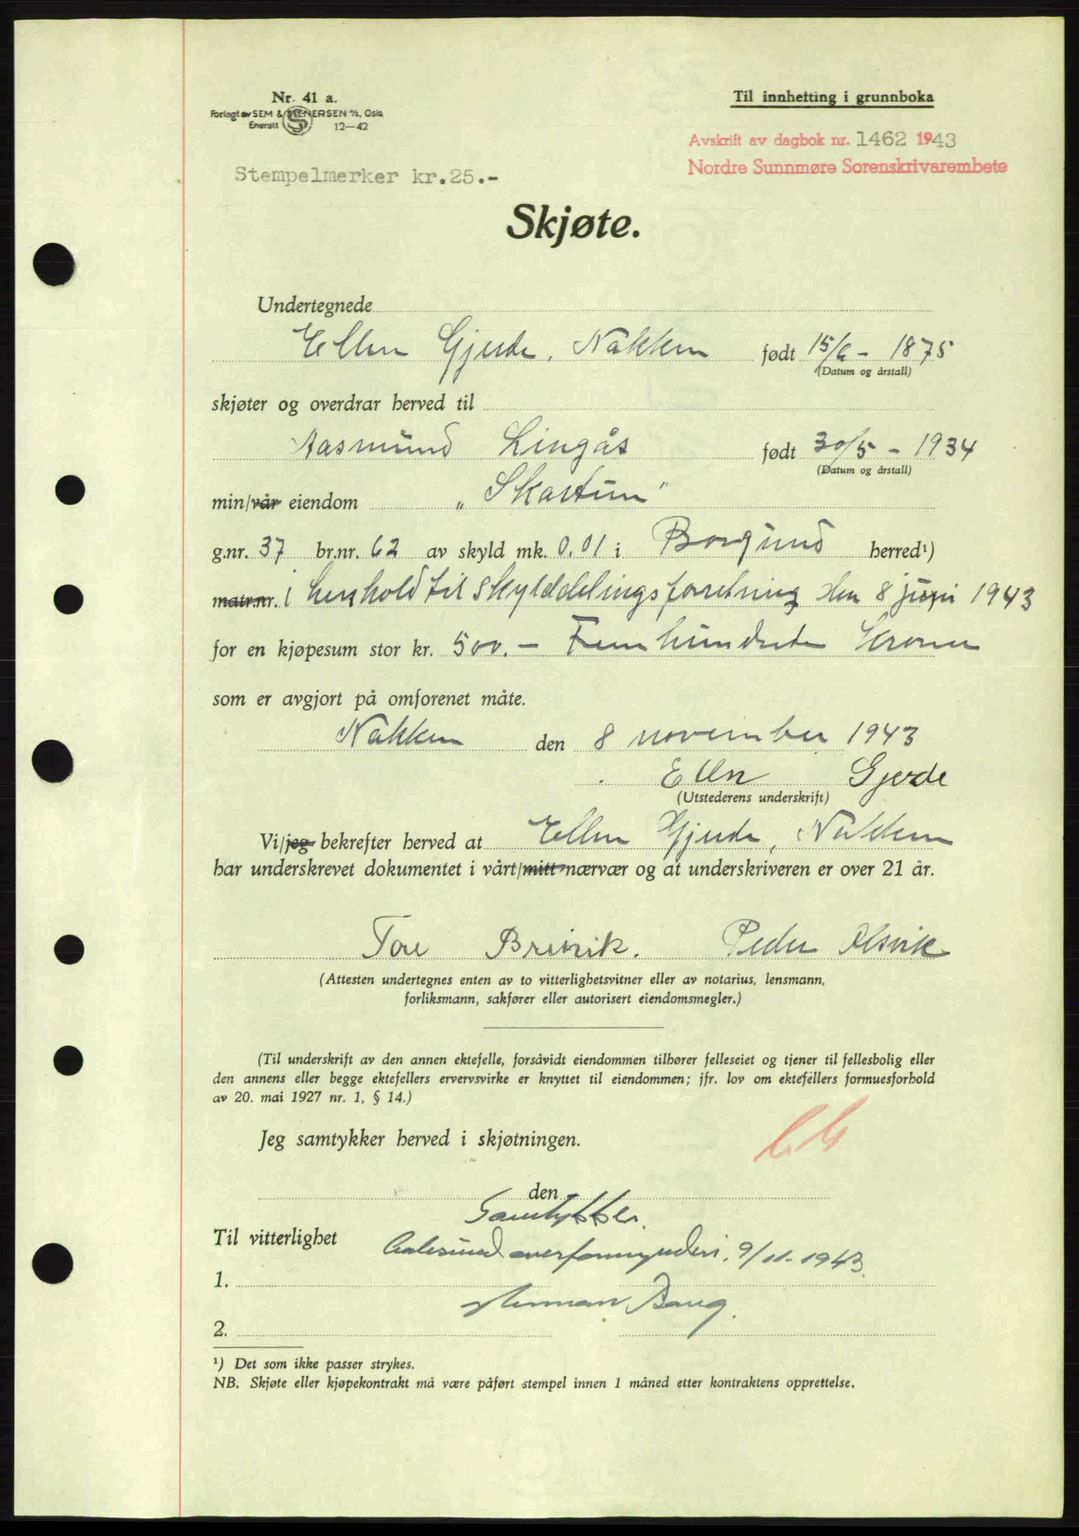 Nr. 41 a.
Forlagt av SEM & STENERSEN A/S, Oslo
Enerett 12—42
Til innhefting i grunnboka
Avskrift av dagbok nr. 1462 1943
Nordre Sunnmøre Sorenskrivarembete
Stempelmerker kr.25.-
Skjøte.
Undertegnede
Ellen Gjerde, Nakken født 15/6 - 1875
(Datum og årstall)
skjøter og overdrar herved til
Aasmund Lingås født 30/5 - 1934
(Datum og årstall)
min/vår eiendom „Skartun"
g.nr. 37 br.nr. 62 av skyld mk. 0,01 i Borgund herred¹)
matr.nr. i henhold til skylddelingsforretning den 8 juni 1943
for en kjøpesum stor kr. 500.- Femhundrete kroner
som er avgjort på omforenet måte.
Nakken den 8 november 1943
Ellen Gjerde
(Utstederens underskrift)
Vi/jeg bekrefter herved at Ellen Gjerde, Nakken
har underskrevet dokumentet i vårt/mitt nærvær og at underskriveren er over 21 år.
Tore Brevik. Peder Alsvik
(Attesten undertegnes enten av to vitterlighetsvitner eller av notarius, lensmann,
forliksmann, sakfører eller autorisert eiendomsmegler.)
(Til underskrift av den annen ektefelle, forsåvidt eiendommen tilhører felleseiet og tjener til fellesbolig eller
den annens eller begge ektefellers ervervsvirke er knyttet til eiendommen; jfr. lov om ektefellers formuesforhold
av 20. mai 1927 nr. 1, § 14.)
Jeg samtykker herved i skjøtningen.
den
Samtykkes.
Til vitterlighet
Aalesund overformynderi, 9/11-1943.
1.
Herman Bang.
2.
¹) Det som ikke passer strykes.
NB. Skjøte eller kjøpekontrakt må være påført stempel innen 1 måned etter kontraktens opprettelse.